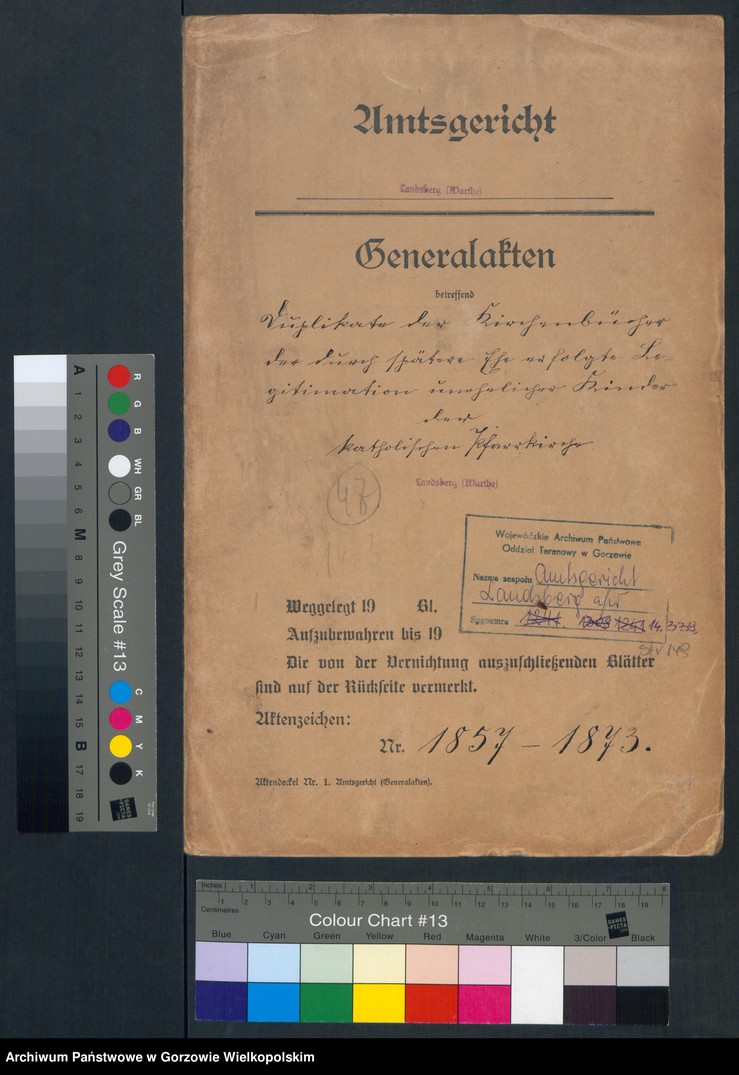 Amtsgericht
Landsberg (Warthe)
Generalakten
betreffend
Duplikate der Kirchenbücher
der durch spätere Ehe erfolgte Le-
gitimation unehelicher Kinder
der
katholischen Pfarrkirche
Landsberg (Warthe)
47
Wojewódzkie Archiwum Państwowe
Oddział Terenowy w Gorzowie
Nazwa zespołu Amtsgericht
Landsberg a/W
Sygnatura 14.
Weggelegt 19 Bl.
Aufzubewahren bis 19
Die von der Vernichtung auszuschließenden Blätter
sind auf der Rückseite vermerkt.
Aktenzeichen:
Nr. 1857 – 1873.
Aktendeckel Nr. 1. Amtsgericht (Generalakten).
A 1 2 3 4 5 6 M 8 9 10 11 12 13 14 15 B 17 18 19
R G B WH GR BL
Grey Scale #13
C M Y K
DANES
PICTA
Inches 1 2 3 4 5 6 7 8
Centimetres 1 2 3 4 5 6 7 8 9 10 11 12 13 14 15 16 17 18 19
Colour Chart #13
DANES
PICTA
Blue Cyan Green Yellow Red Magenta White 3/Color Black
Archiwum Państwowe w Gorzowie Wielkopolskim